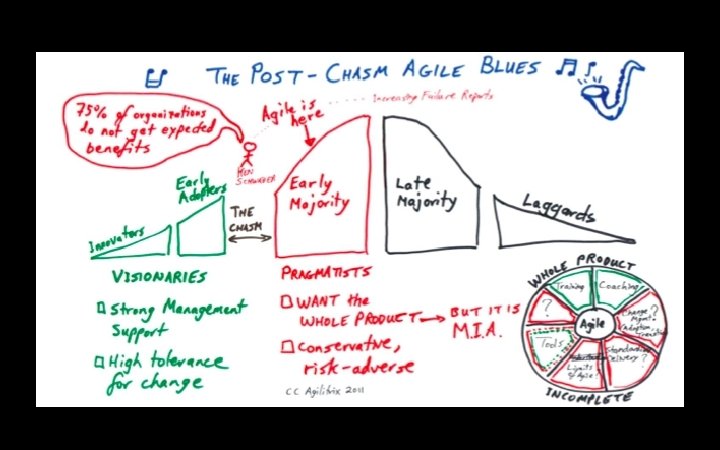 THE POST-CHASM AGILE BLUES
75% of organizations
do not get expected
benefits
Agile is
here
Increasing Failure Reports
KEN
SCHWABER
Innovators
Early
Adopters
THE
CHASM
Early
Majority
Late
Majority
Laggards
VISIONARIES
Strong Management
Support
High tolerance
for change
PRAGMATISTS
WANT the
WHOLE PRODUCT → BUT IT IS
M.I.A.
Conservative,
risk-adverse
CC Agilitrix 2011
WHOLE PRODUCT
Training
Coaching
?
Agile
Change
Mgmt
Adoption
Tools
Limits
Delivery?
INCOMPLETE